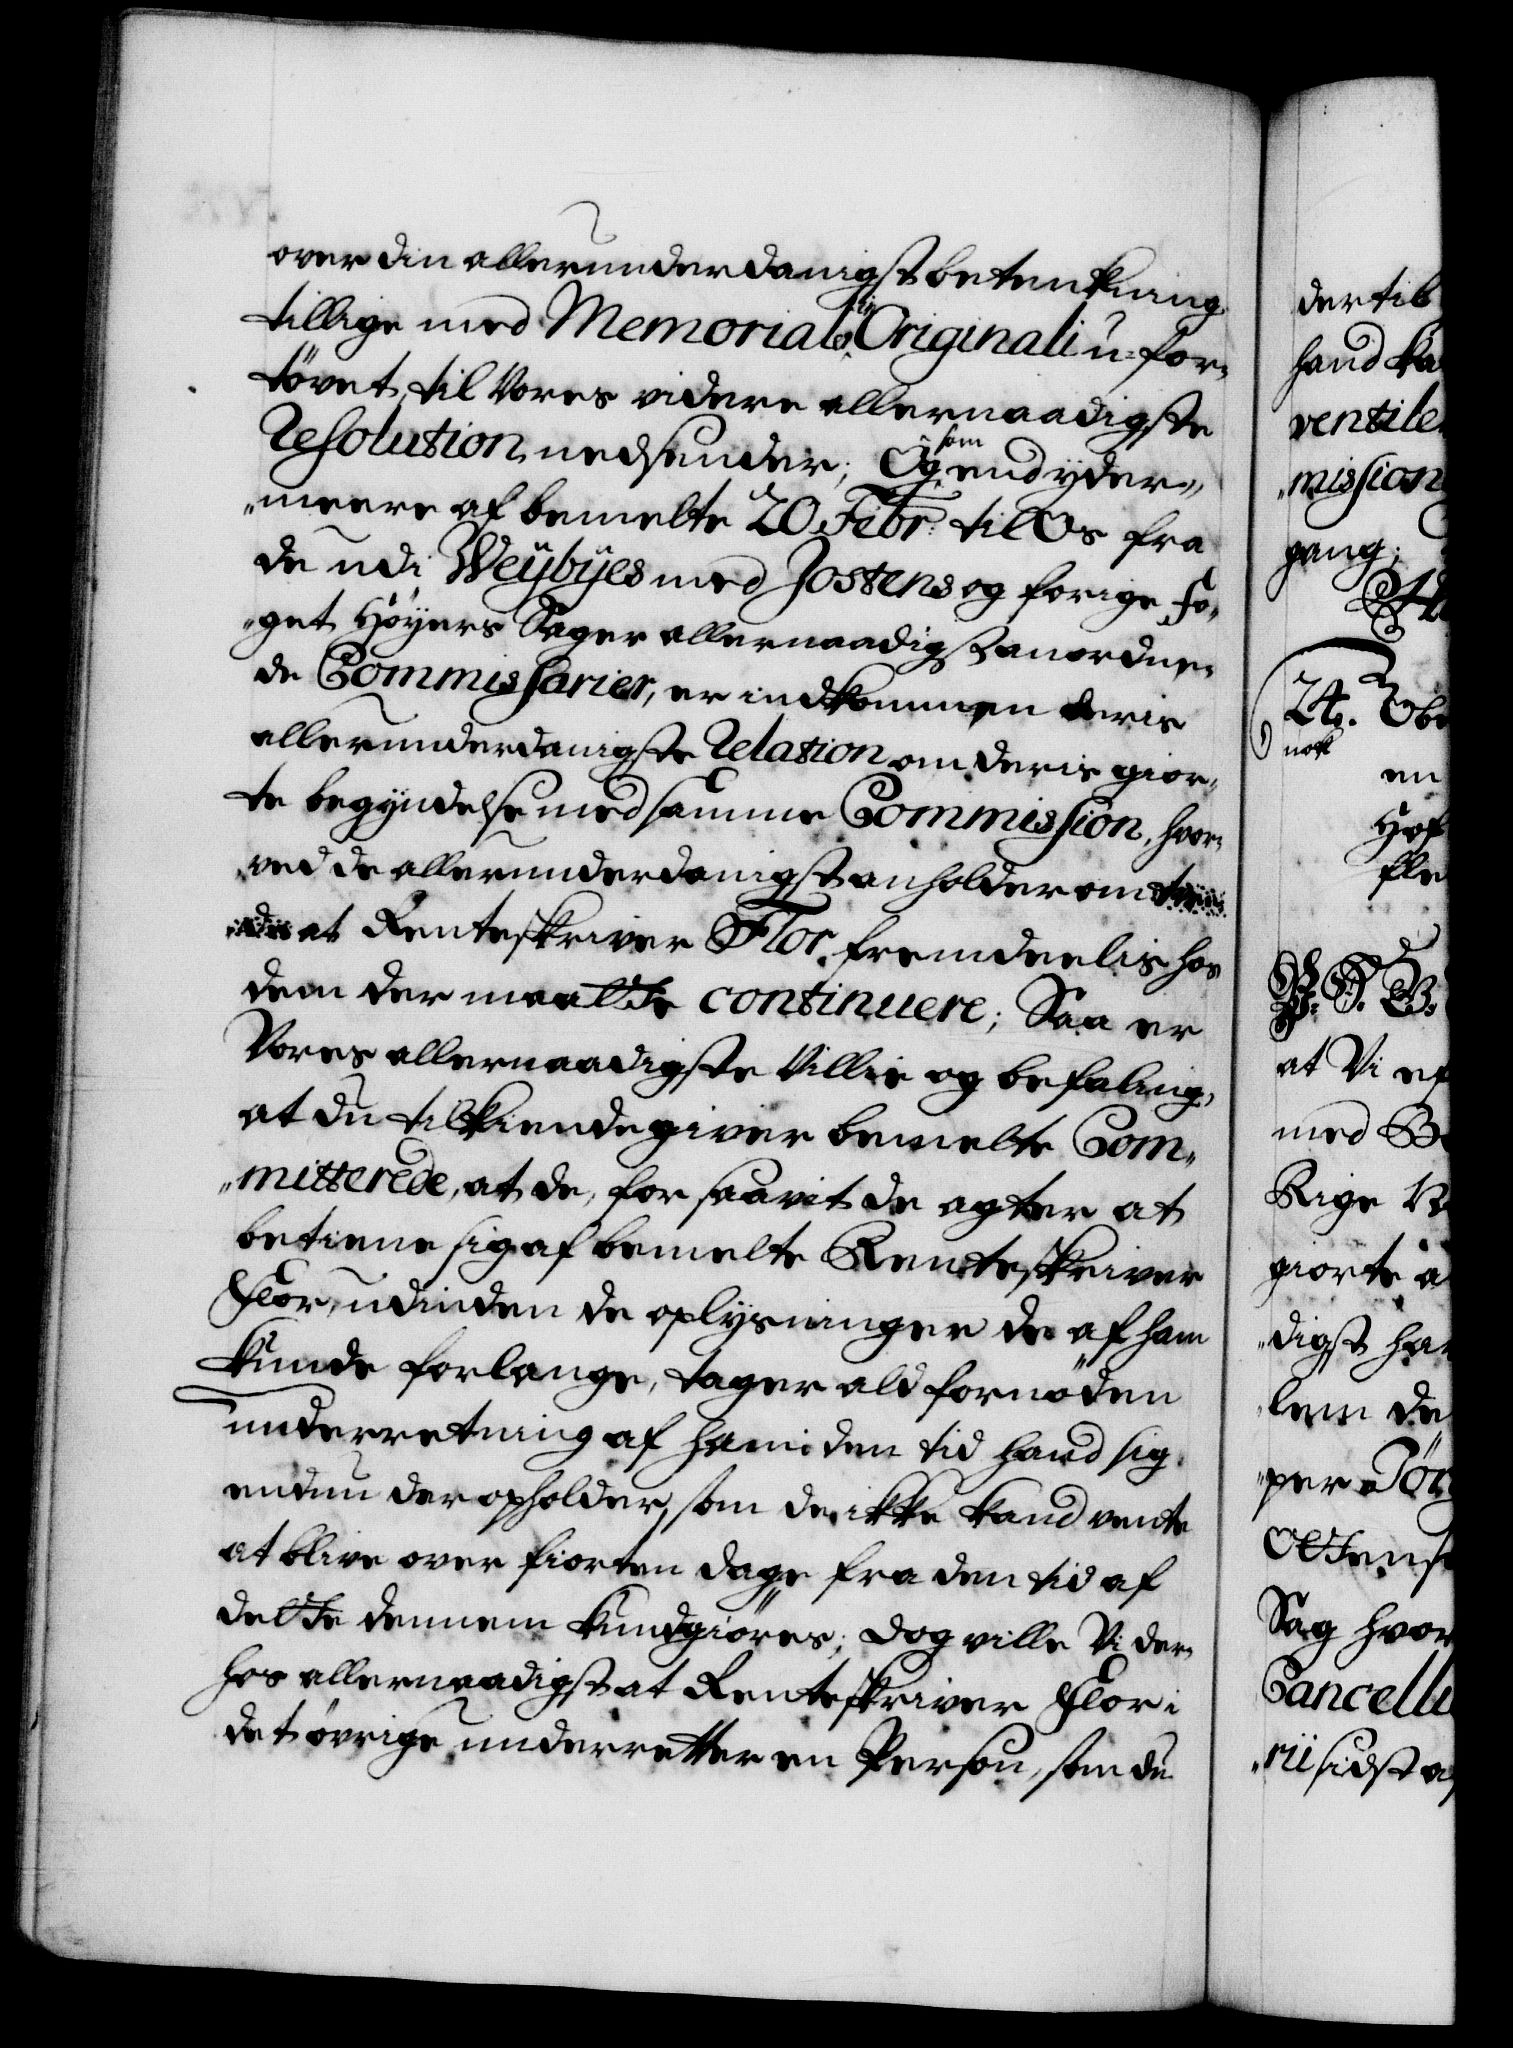 over din allerunderdanigst betenkning
tillige med Memorial in Originali u-for-
tövet, til Vores videre allernaadigste
Resolution nedsender; Og som end yder-
meere af bemelte 20 Febr: til Os fra
de udi Weybyes med Jostens og forige Fo-
get Höyers Sager allernaadigst anordne-
de Commissarier, er indkommen deris
allerunderdanigste Relation om deris gior-
te begyndelse med samme Commission, hvor-
ved de allerunderdanigst anholder om
at Renteskriver Flor fremdeelis hos
dem der maatte continuere; Saa er
Vores allernaadigste Villie og befaling,
at du tilkiendegiver bemelte Com-
mitterede, at de, for saavit de agter at
betiene sig af bemelte Renteskriver
Flor, udi den de oplysninger de af ham
kunde forlange, tager ald fornöden
underretning af ham i den tid hand sig
endnu der opholder, som de ikke kand vente
at blive over fiorten dage fra den tid af
dette dennem kundgiöres; dog ville Vi der-
hos allernaadigst at Renteskriver Flor i
det övrige underretter en Person, som du
dertil
hand ka
ventile
mission
gang;
24. Obe
nok
en
Hof
fle
P. S. V.
at Vi ef
med B
Rige N
giorte a
digst ha
lem de
per Jör
Ottense
Sag hvor
Cancelli
rii sidst a